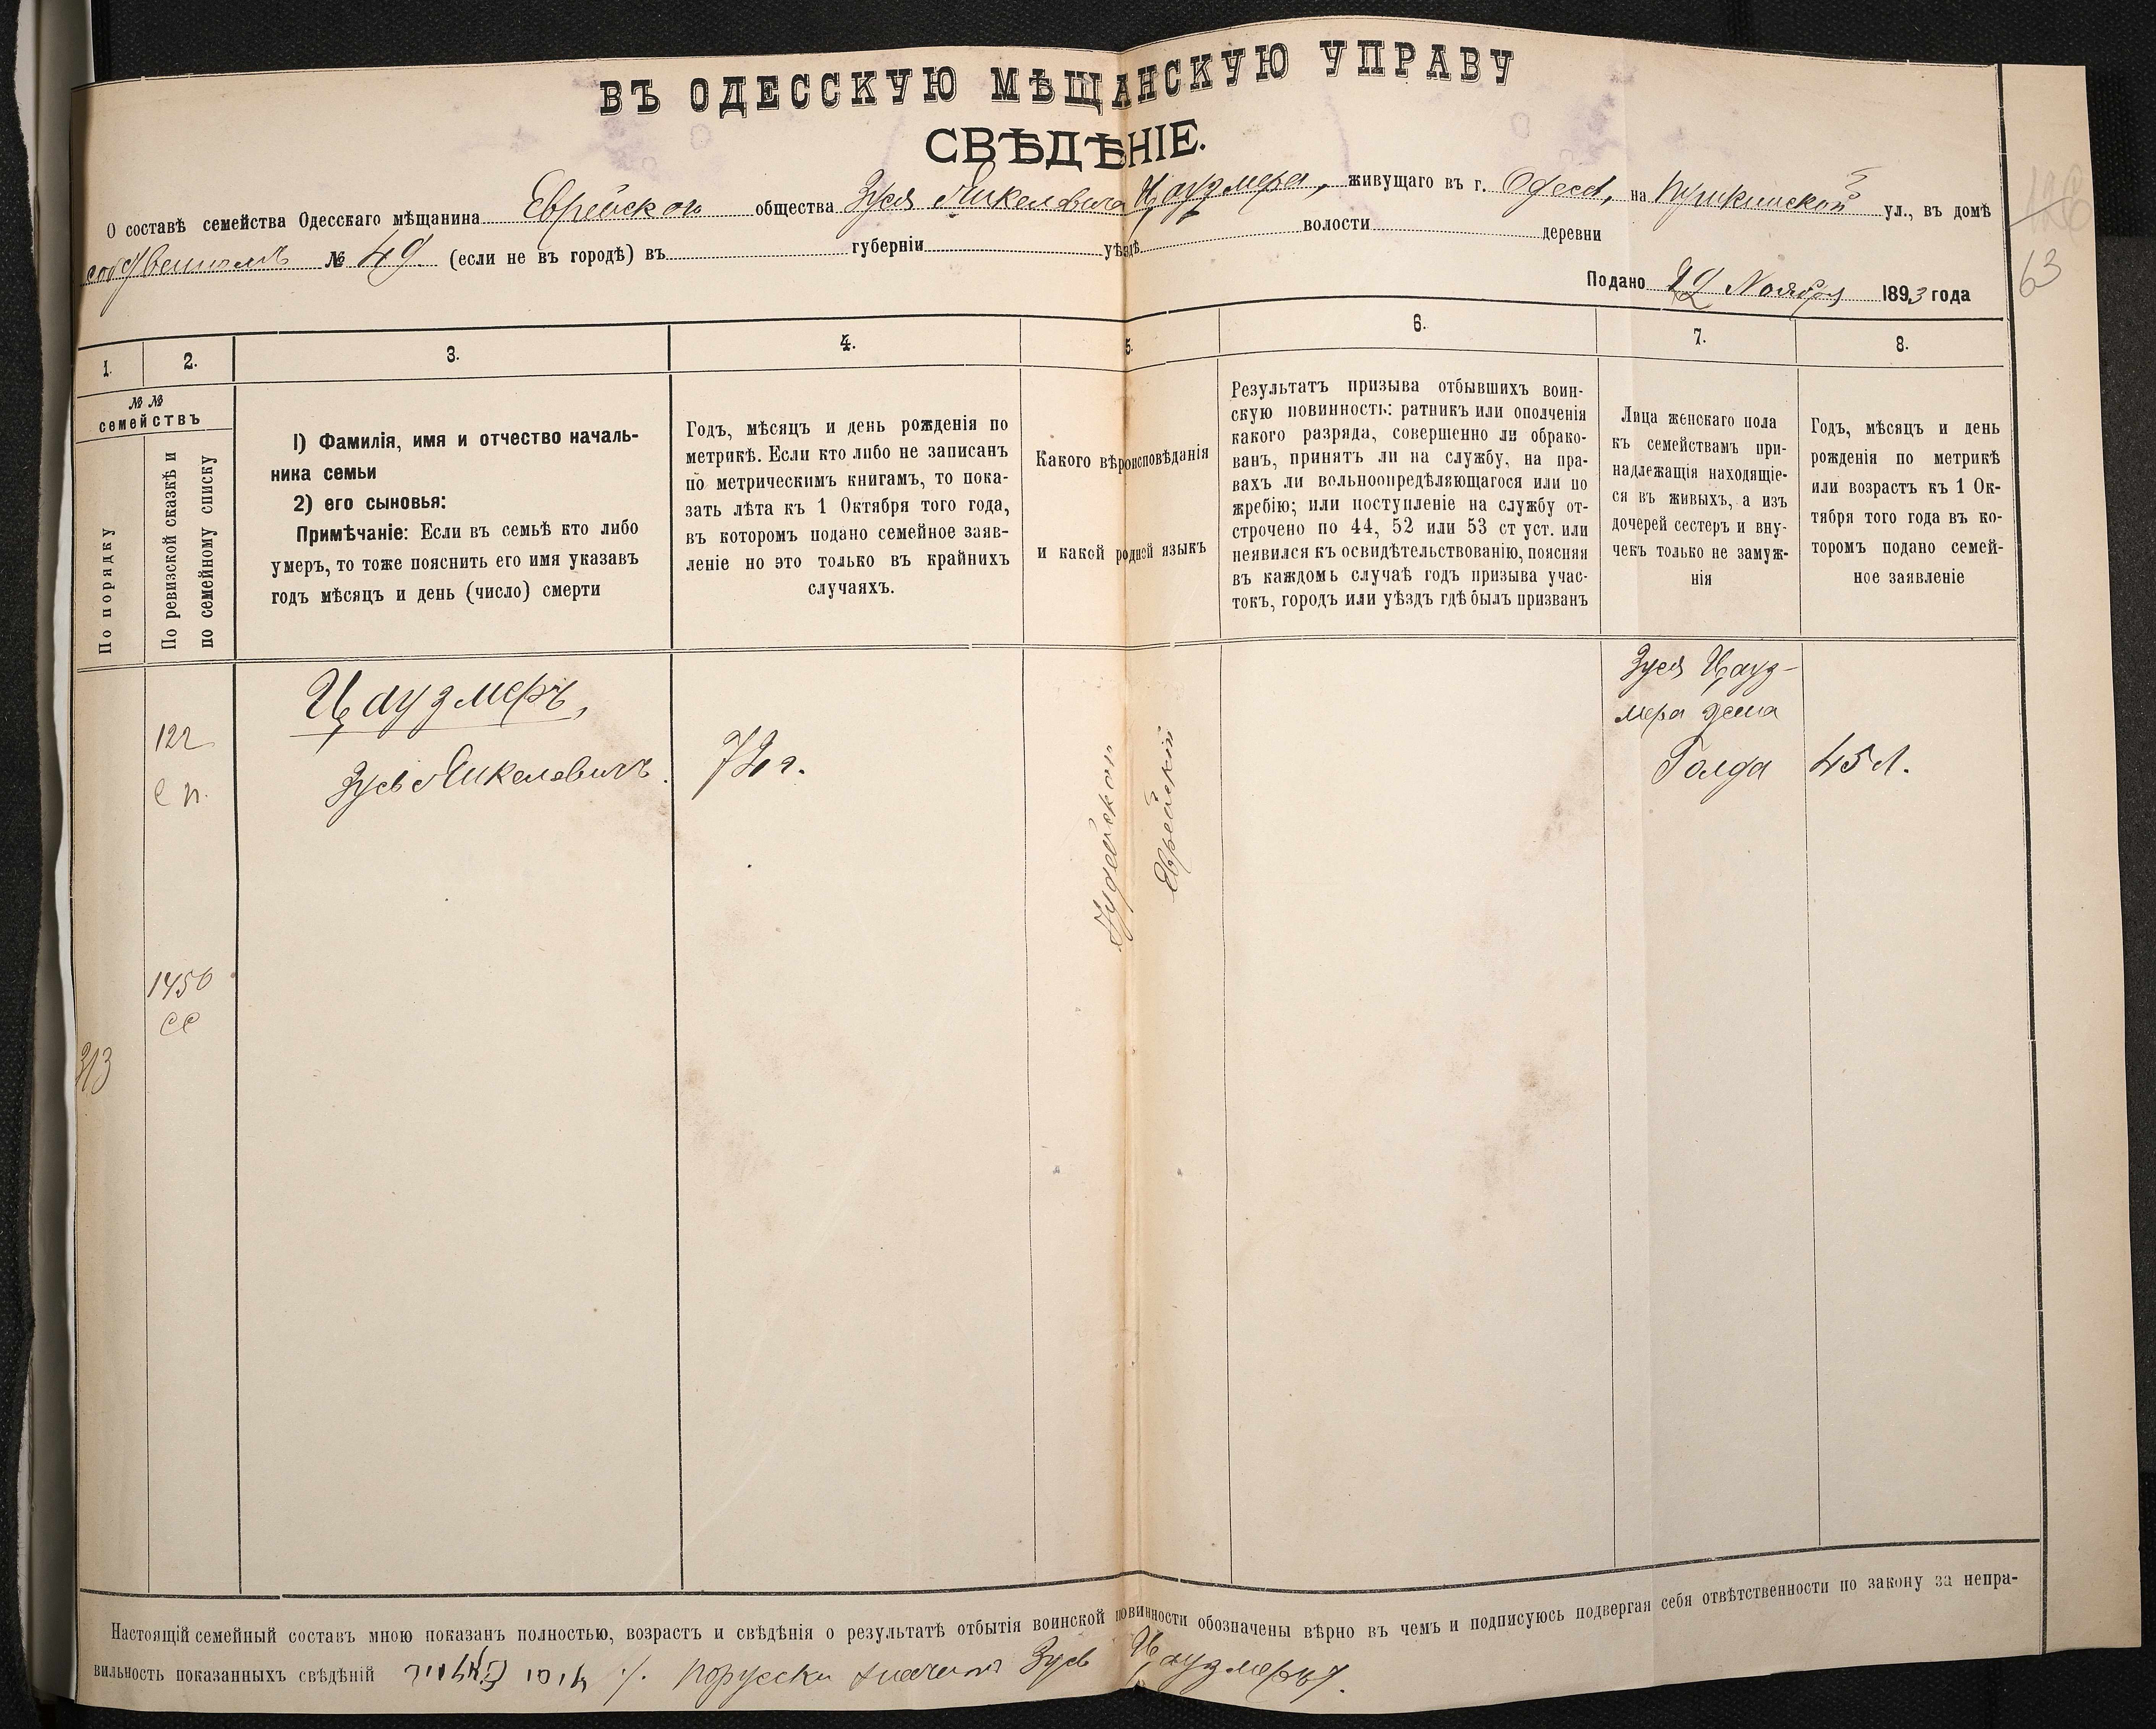 ВЪ ОДЕССКУЮ МѢЩАНСКУЮ УПРАВУ
СВѢДѢНІЕ.
О составѣ семейства Одесскаго мѣщанина Еврейскаго общества Зуся Янкелевича Цаузмера, живущаго въ г. Одесѣ, на Пушкинской ул., въ домѣ
собственномъ № 49 (если не въ городѣ) въ губерніи уѣздѣ волости деревни
126
63
Подано 22 Ноября 1893 года
1. 2. 3. 4. 5. 6. 7. 8.
№ №
семействъ
По порядку
По ревизской сказкѣ и
по семейному списку
1) Фамилія, имя и отчество началь-
ника семьи
2) его сыновья:
Примѣчаніе: Если въ семьѣ кто либо
умеръ, то тоже пояснить его имя указавъ
годъ мѣсяцъ и день (число) смерти
Годъ, мѣсяцъ и день рожденія по
метрикѣ. Если кто либо не записанъ
по метрическимъ книгамъ, то пока-
зать лѣта къ 1 Октября того года,
въ которомъ подано семейное заяв-
леніе но это только въ крайнихъ
случаяхъ.
Какого вѣроисповѣданія
и какой родной языкъ
Результатъ призыва отбывшихъ воин-
скую повинность: ратникъ или ополченія
какого разряда, совершенно ли обрако-
ванъ, принятъ ли на службу, на пра-
вахъ ли вольноопредѣляющагося или по
жребію; или поступленіе на службу от-
строчено по 44, 52 или 53 ст уст. или
неявился къ освидѣтельствованію, поясняя
въ каждомъ случаѣ годъ призыва учас-
токъ, городъ или уѣздъ гдѣ былъ призванъ
Лица женскаго пола
къ семействамъ при-
надлежащія находящіе-
ся въ живыхъ, а изъ
дочерей сестеръ и вну-
чекъ только не замуж-
нія
Годъ, мѣсяцъ и день
рожденія по метрикѣ
или возрастъ къ 1 Ок-
тября того года въ ко-
торомъ подано семей-
ное заявленіе
122
с п.
1450
сс
313
Цаузмеръ,
Зусь Янкелевичъ.
72 г.
Іудейскаго
Еврейскій
Зуся Цауз-
мера жена
Голда
45 л.
Настоящій семейный составъ мною показанъ полностью, возрастъ и свѣдѣнія о результатѣ отбытія воинской повинности обозначены вѣрно въ чемъ и подписуюсь подвергая себя отвѣтственности по закону за непра-
вильность показанныхъ свѣдѣній זוסי порусски значитъ Зусь Цаузмеръ